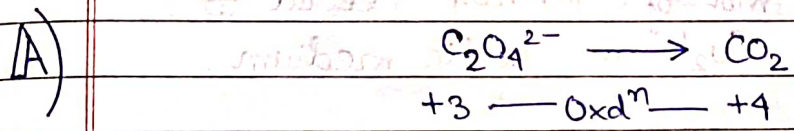 A) C₂O₄²⁻ ⟶ CO₂
+3 — Oxdⁿ — +4